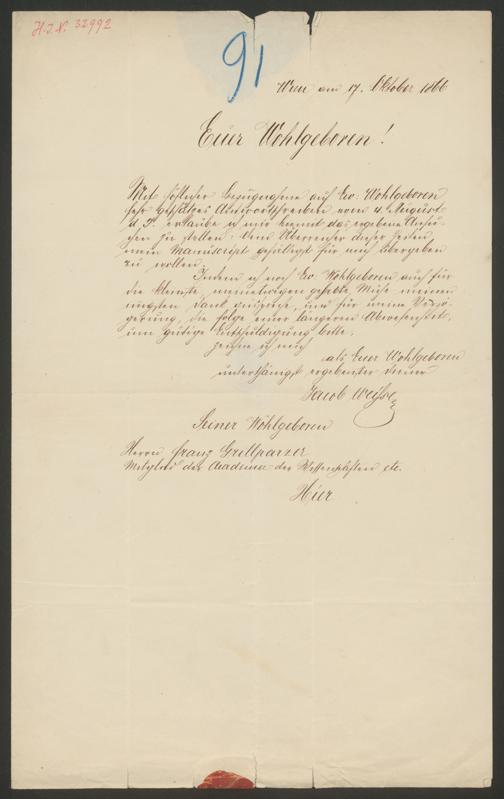 H.I.N. 33992
91
Wien am 17. Oktober 1866
Euer Wohlgeboren!
Mit höflicher Bezugnahme auf Ew: Wohlgeboren
sehr geschätztes Antwortschreiben vom 4. August
d. J. erlaube ich mir hiemit das ergebene Ansu-
chen zu stellen: dem Überreicher dieser Zeilen
mein Manuscript gefälligst für mich übergeben
zu wollen.
Indem ich noch Ew. Wohlgeboren auch für
die meinetwegen gehabte Mühe meinen
Dank und für meine Verzö-
gerung, die Folge einer längeren Abwesenheit,
um gütige Entschuldigung bitte,
zeichne ich mich
als Euer Wohlgeboren
unterthänigst ergebenster Diener
Jacob Weiss
Seiner Wohlgeboren
Herrn Franz Grillparzer
Mitglied der Academie der Wissenschaften etc.
Hier